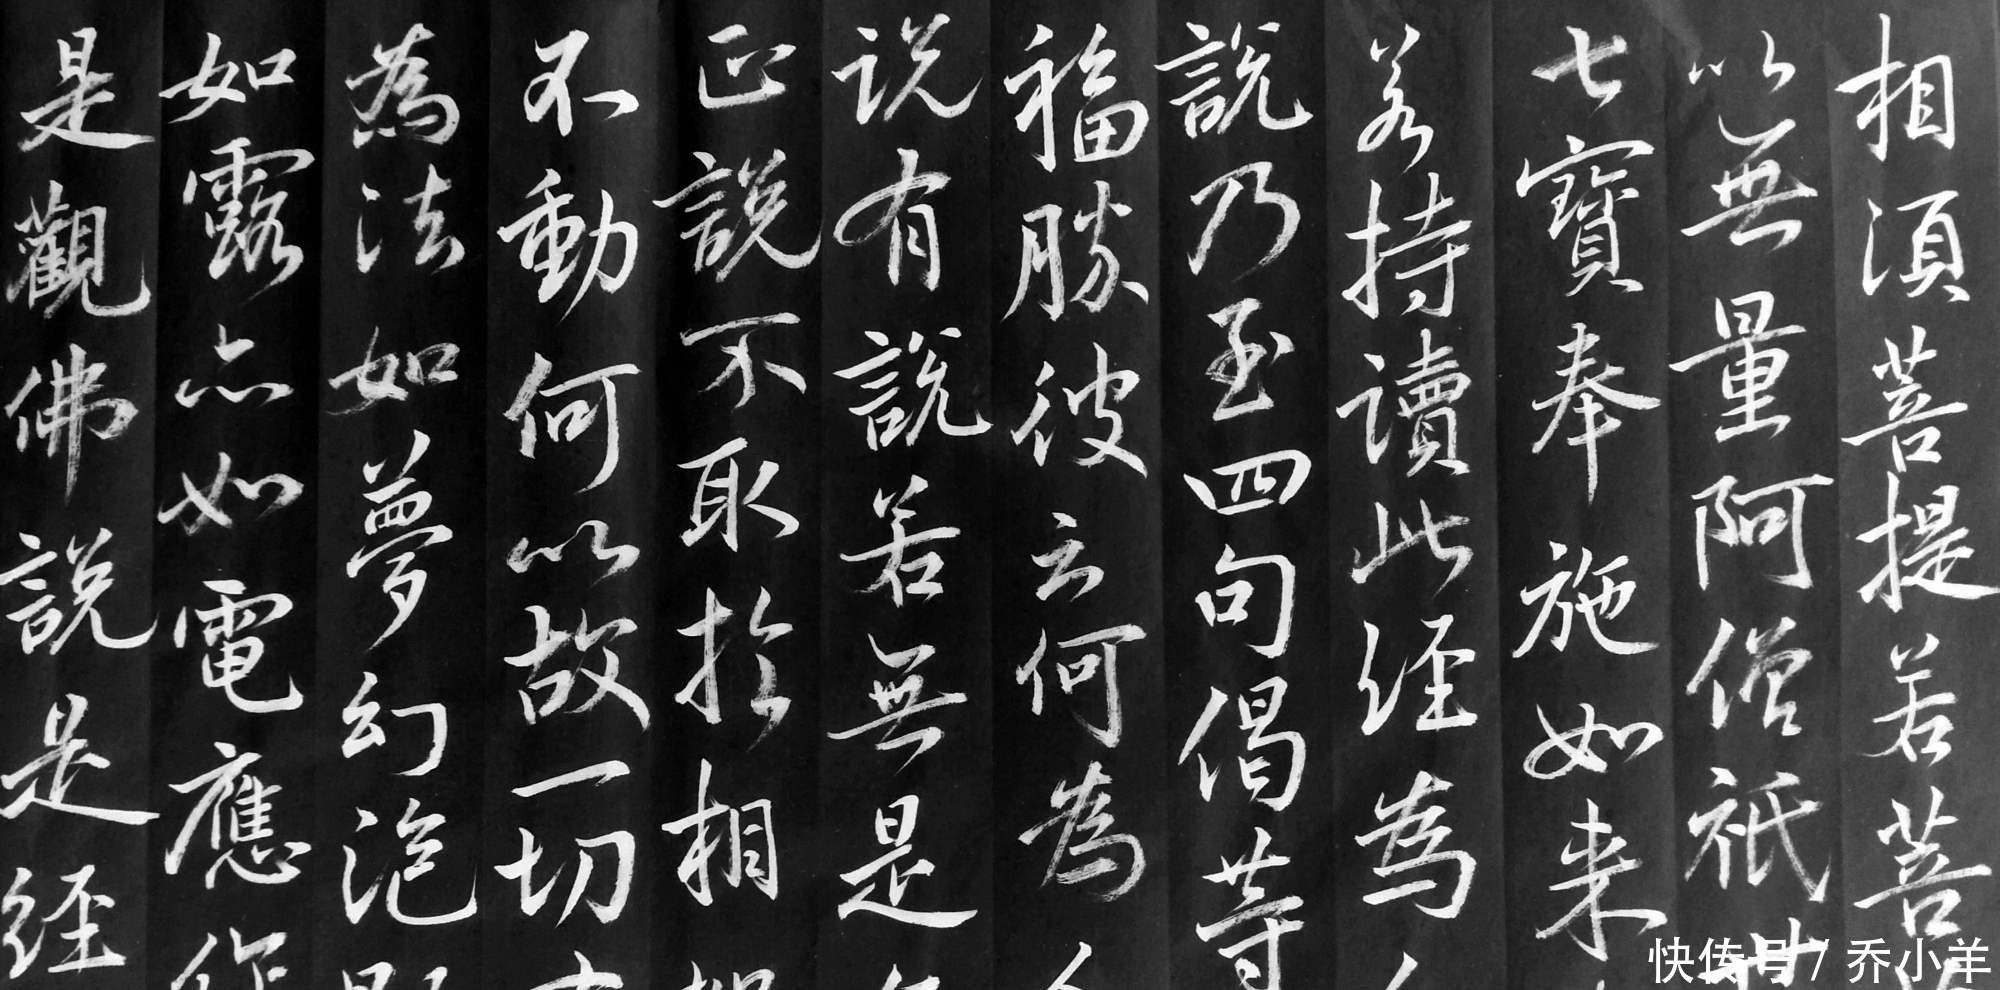 相須菩提若菩
以無量阿僧祇世
七寶奉施如来
若持讀此経為人
説乃至四句偈等
福勝彼云何為人
说有説若無是名
正説不取於相如
不動何以故一切有
為法如夢幻泡影
如露亦如電應作
是觀佛説是経
快传号/乔小羊